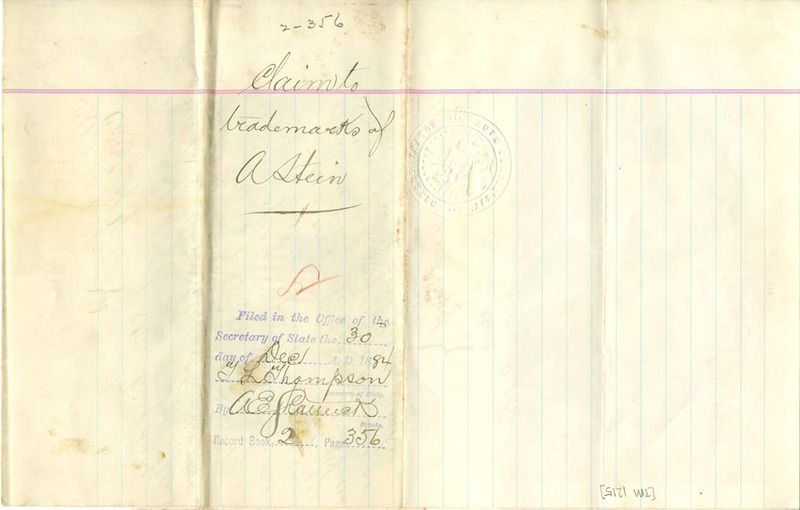 2-356
Claim to
trademarks of
A Stein
Filed in the Office of the
Secretary of State the 30
day of Dec A. D. 1884
Thompson
Secretary of State.
By A E
Deputy.
Record Book, 2, Page 356
[TM 1215]